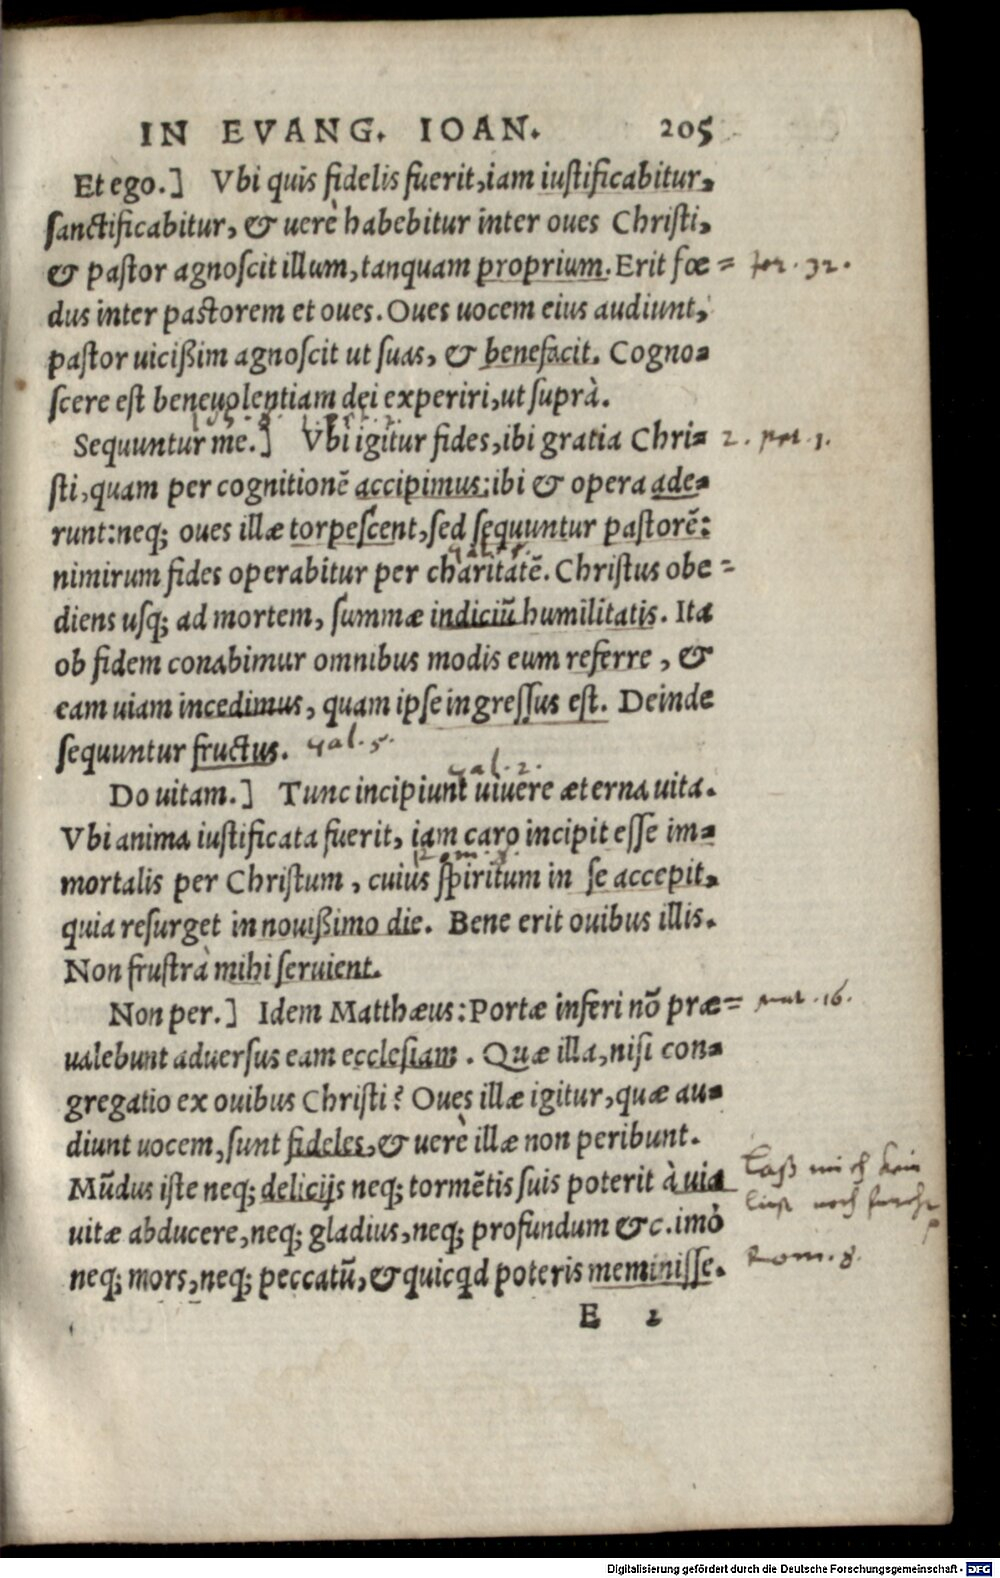 IN EVANG. IOAN. 205
Et ego.] Vbi quis fidelis fuerit, iam iustificabitur,
sanctificabitur, & uerè habebitur inter oues Christi,
& pastor agnoscit illum, tanquam proprium. Erit fœ= Jer. 32.
dus inter pastorem et oues. Oues uocem eius audiunt,
pastor uicißim agnoscit ut suas, & benefacit. Cogno=
scere est beneuolentiam dei experiri, ut suprà.
Sequuntur me.] Vbi igitur fides, ibi gratia Chri= 2. pet. 1.
sti, quam per cognitionẽ accipimus: ibi & opera ade=
runt: neq; oues illæ torpescent, sed sequuntur pastorẽ:
gal. 5.
nimirum fides operabitur per charitatẽ. Christus obe=
diens usq; ad mortem, summæ indiciũ humilitatis. Ita
ob fidem conabimur omnibus modis eum referre, &
eam uiam incedimus, quam ipse ingressus est. Deinde
sequuntur fructus. gal. 5.
gal. 2.
Do uitam.] Tunc incipiunt uiuere æterna uita.
Vbi anima iustificata fuerit, iam caro incipit esse im=
Rom. 8.
mortalis per Christum, cuius spiritum in se accepit,
quia resurget in nouißimo die. Bene erit ouibus illis.
Non frustrà mihi seruient.
Non per.] Idem Matthæus: Portæ inferi nõ præ= mat. 16.
ualebunt aduersus eam ecclesiam. Quæ illa, nisi con=
gregatio ex ouibus Christi? Oues illæ igitur, quæ au=
diunt uocem, sunt fideles, & uerè illæ non peribunt.
Mũdus iste neq; delicijs neq; tormẽtis suis poterit à uia
uitæ abducere, neq; gladius, neq; profundum &c. imò
neq; mors, neq; peccatũ, & quicqd poteris meminisse.
Laß mich kein
lust noch furcht
Rom. 8.
E 2
Digitalisierung gefördert durch die Deutsche Forschungsgemeinschaft - DFG